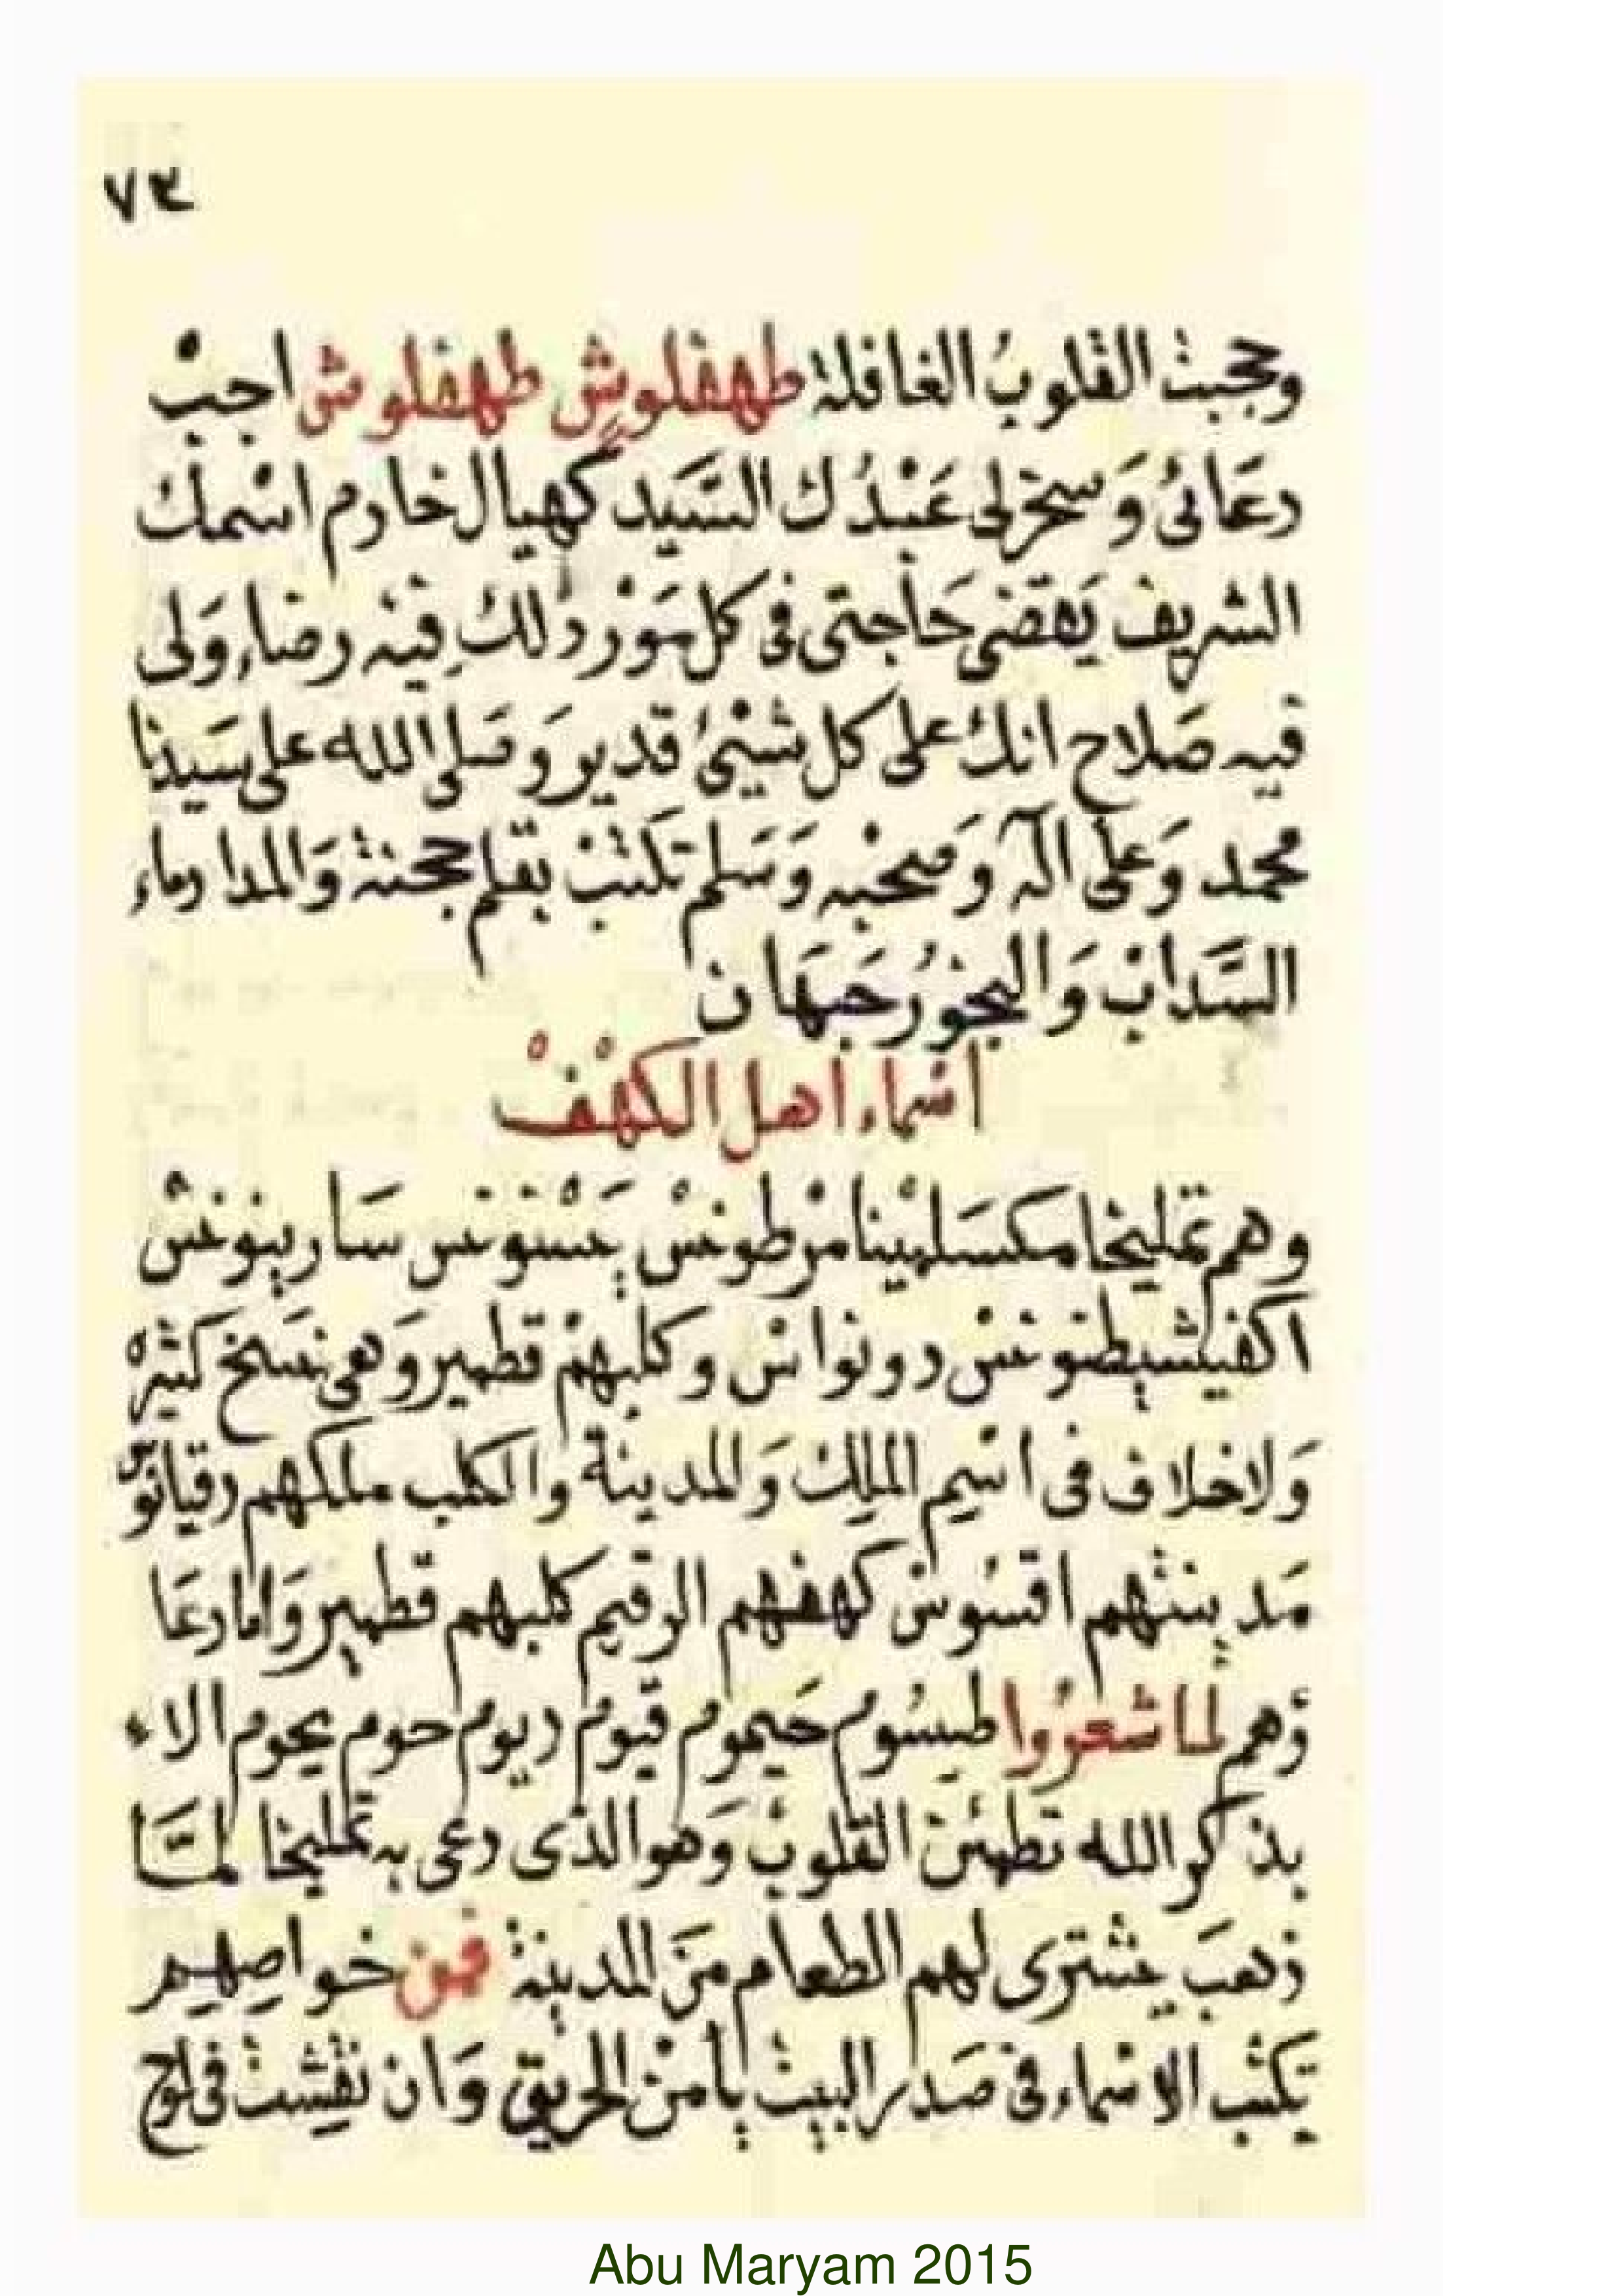 ٧٤
وحجبت القلوبُ الغافلة طهفلوش طهفلوش اجبْ
دعَائى وَسخرلى عَبْدُك السَّيد كهيال خادم اسْمك
الشريف يَقضى حَاجتى فى كل مَوْر ذلك فيه رضاء ولى
فيه صَلاح انك على كل شيْئ قدير وَصَلى الله على سَيدنا
محمد وَعلى آله وَصحْبه وَسَلم تكتبْ بقلم جحنة وَالمداد ماء
السَّدابْ وَالبخوُر حَبهَان
اسْماء اهل الكهْفْ
وهم تمليخا مكسَلمْينا مرْطونسْ يَنْتونس سَارينونسْ
اكفيشيطنونسْ دونوانسْ وكلبهمْ قطمير وَهى نسَخ كثيرْه
وَلاخلاف فى اسْم الملِك وَالمدينة والكلب ملكهم دقيانوس
مَدينتهم اقسُوس كهفهم الرقيم كلبهم قطمير وَامادعَا
ؤهم لماشعرُوا طيسُوم حَيموم قيوم ديوم حوم يحوم الاء
بذكر الله تطمئن القلوبُ وَهوالذى دعى به تمليخا لمَّا
ذهبَ يشترى لهم الطعام منَ المدينة فمن خواصِهِم
تكتب الاسْماء فى صَدر البيت يأمنْ الحريق وَان نقشت فى لوح
Abu Maryam 2015